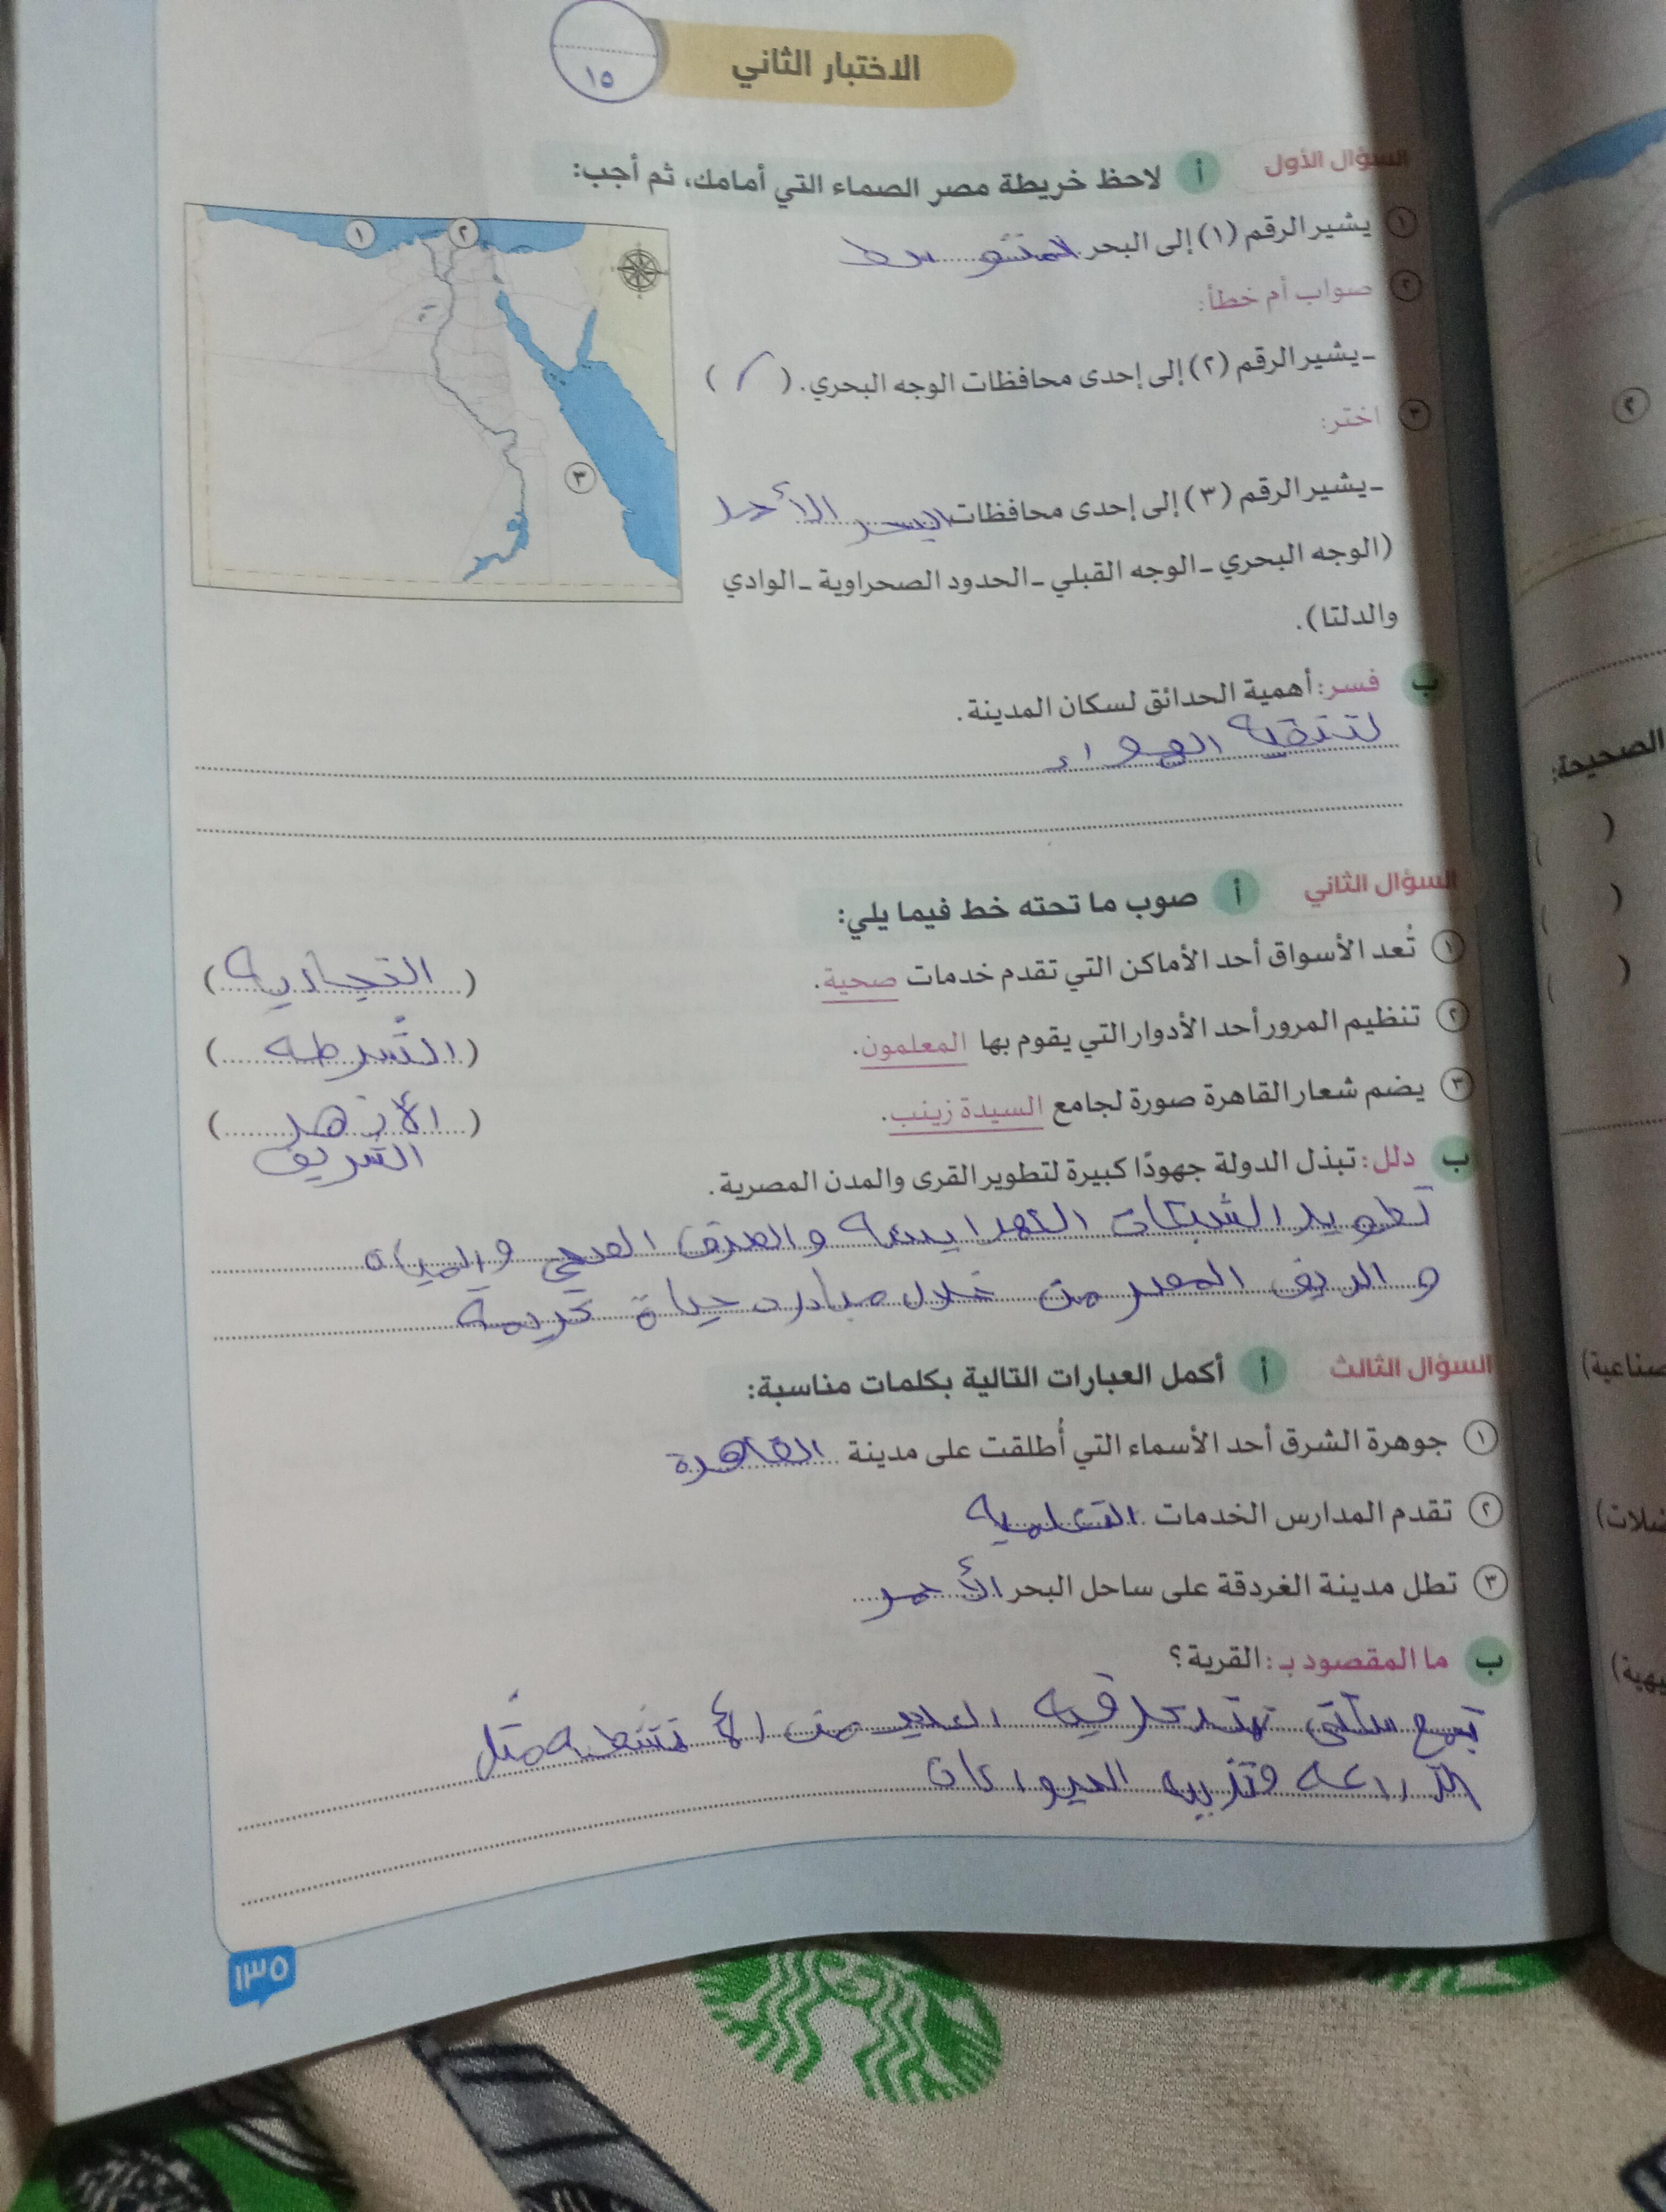 الاختبار الثاني
١٥
السؤال الأول أ لاحظ خريطة مصر الصماء التي أمامك، ثم أجب:
١ يشير الرقم (١) إلى البحر المتوسط
٢ صواب أم خطأ:
ـ يشير الرقم (٢) إلى إحدى محافظات الوجه البحري. (✓)
٣ اختر:
ـ يشير الرقم (٣) إلى إحدى محافظات البحر الأحمر
(الوجه البحري ـ الوجه القبلي ـ الحدود الصحراوية ـ الوادي
والدلتا).
١
٢
٣
ب فسر: أهمية الحدائق لسكان المدينة.
لتنقيه الهواء
السؤال الثاني أ صوب ما تحته خط فيما يلي:
١ تُعد الأسواق أحد الأماكن التي تقدم خدمات صحية. (التجاريه)
٢ تنظيم المرور أحد الأدوار التي يقوم بها المعلمون. (الشرطه)
٣ يضم شعار القاهرة صورة لجامع السيدة زينب. (الأزهر
الشريف)
ب دلل: تبذل الدولة جهودًا كبيرة لتطوير القرى والمدن المصرية.
تطوير الشبكات الكهرابيه والصرف الصحي والمياه
و الريف المصر من خلال مبادره حياة كريمة
السؤال الثالث أ أكمل العبارات التالية بكلمات مناسبة:
١ جوهرة الشرق أحد الأسماء التي أُطلقت على مدينة القاهرة
٢ تقدم المدارس الخدمات التعلميه
٣ تطل مدينة الغردقة على ساحل البحر الأحمر
ب ما المقصود بـ: القرية؟
تجمع فيه العديد من الأنشطه مثل
الزراعه وتربيه الحيوانات
١٣٥
٢
الصحيحة: